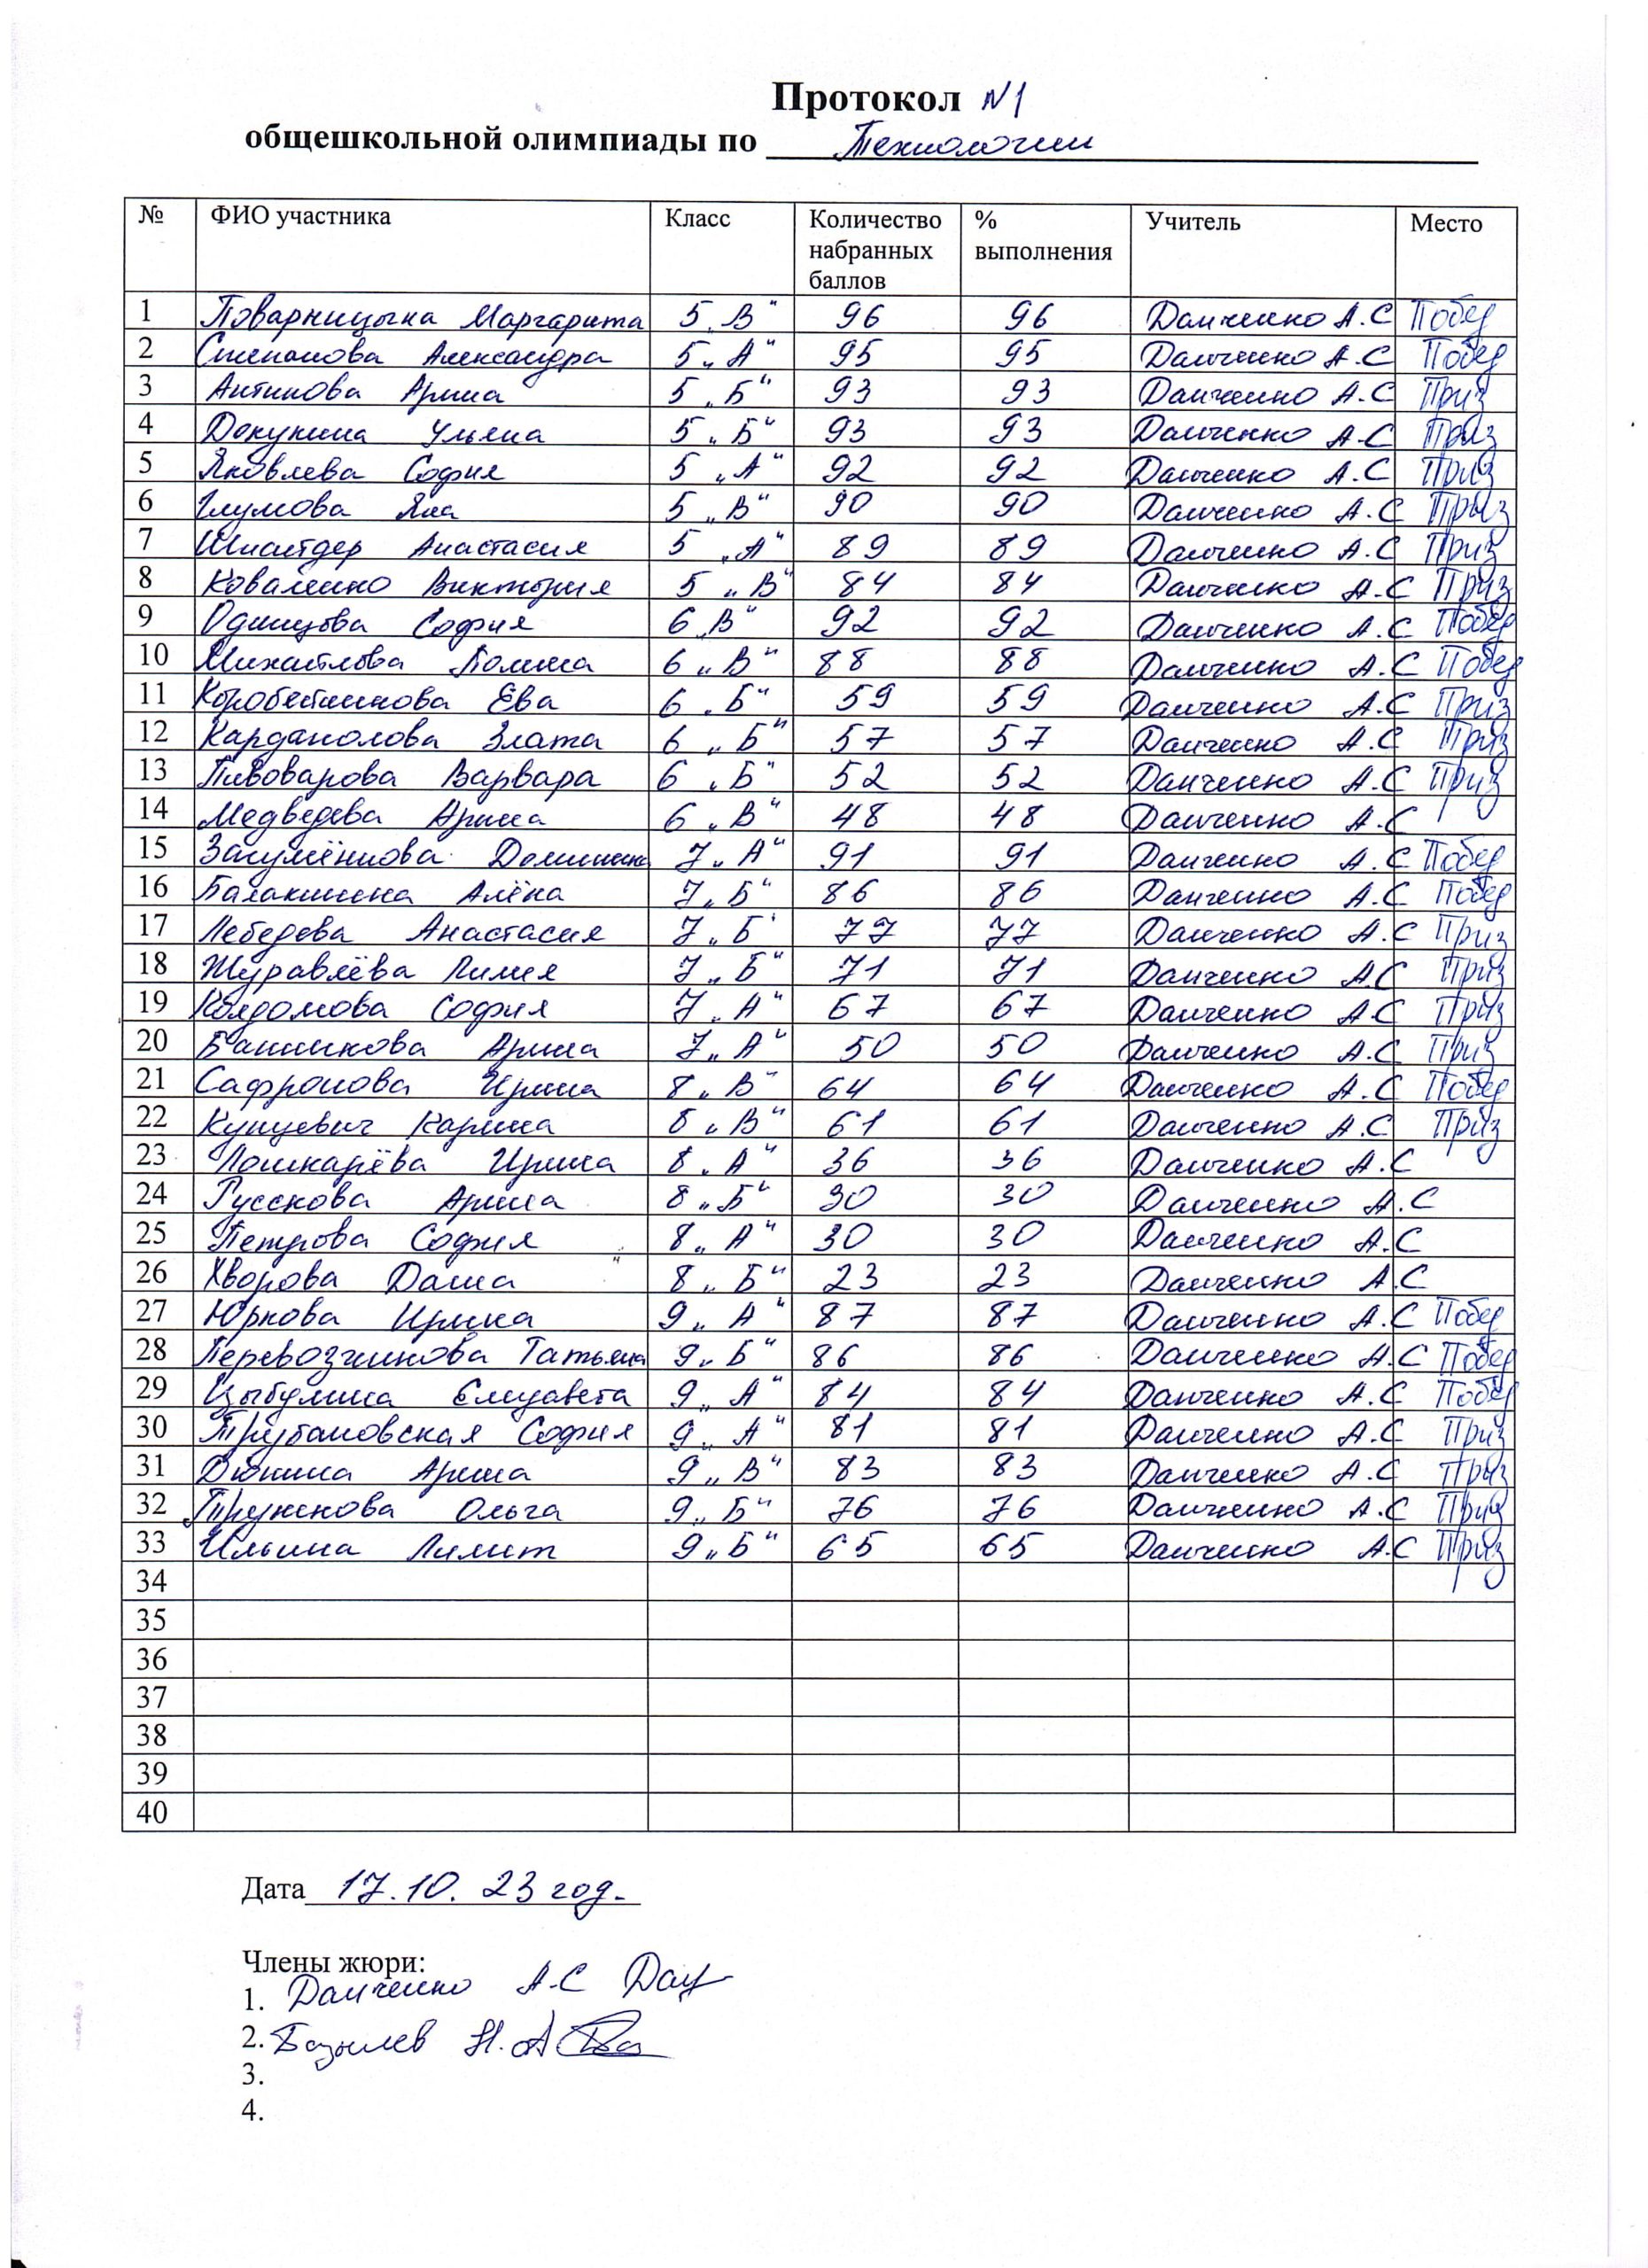 Протокол №1
общешкольной олимпиады по Технологии
№ ФИО участника Класс Количество набранных баллов % выполнения Учитель Место
1 Поварницына Маргарита 5 „В“ 96 96 Данченко А.С Побед
2 Степанова Александра 5 „А“ 95 95 Данченко А.С Побед
3 Антипова Арина 5 „Б“ 93 93 Данченко А.С Приз
4 Докукина Ульяна 5 „Б“ 93 93 Данченко А.С Приз
5 Яковлева София 5 „А“ 92 92 Данченко А.С Приз
6 Глумова Яна 5 „В“ 90 90 Данченко А.С Приз
7 Шнайдер Анастасия 5 „А“ 89 89 Данченко А.С Приз
8 Коваленко Виктория 5 „В“ 84 84 Данченко А.С Приз
9 Одинцова София 6 „В“ 92 92 Данченко А.С Побед
10 Михайлова Полина 6 „В“ 88 88 Данченко А.С Побед
11 Коробейникова Ева 6 „Б“ 59 59 Данченко А.С Приз
12 Карданолова Злата 6 „Б“ 57 57 Данченко А.С Приз
13 Пивоварова Варвара 6 „Б“ 52 52 Данченко А.С Приз
14 Медведева Арина 6 „В“ 48 48 Данченко А.С
15 7 „А“ 91 91 Данченко А.С Побед
16 Балакшина Алёна 7 „Б“ 86 86 Данченко А.С Побед
17 Лебедева Анастасия 7 „Б“ 77 77 Данченко А.С Приз
18 Журавлёва Лилия 7 „Б“ 71 71 Данченко А.С Приз
19 София 7 „А“ 67 67 Данченко А.С Приз
20 Банникова Арина 7 „А“ 50 50 Данченко А.С Приз
21 Сафронова Ирина 8 „В“ 64 64 Данченко А.С Побед
22 Кунцевич Карина 8 „В“ 61 61 Данченко А.С Приз
23 Лошкарёва Ирина 8 „А“ 36 36 Данченко А.С
24 Русскова Арина 8 „Б“ 30 30 Данченко А.С
25 Петрова София 8 „А“ 30 30 Данченко А.С
26 Хворова Даша 8 „Б“ 23 23 Данченко А.С
27 Юркова Ирина 9 „А“ 87 87 Данченко А.С Побед
28 Перевозчикова Татьяна 9 „Б“ 86 86 Данченко А.С Побед
29 Цыбулина Елизавета 9 „А“ 84 84 Данченко А.С Побед
30 Трубановская София 9 „А“ 81 81 Данченко А.С Приз
31 Дюпина Арина 9 „В“ 83 83 Данченко А.С Приз
32 Тружкова Ольга 9 „Б“ 76 76 Данченко А.С Приз
33 Ильина Лилит 9 „Б“ 65 65 Данченко А.С Приз
34
35
36
37
38
39
40
Дата 17.10.23 год.
Члены жюри:
1. Данченко А.С
2. Базылев Н.А
3.
4.